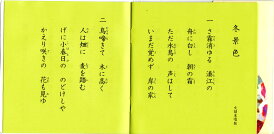 冬景色
一 さ霧消ゆる 湊江の
舟に白し 朝の霜
ただ水鳥の 声はして
いまだ覚めず 岸の家
二 烏啼きて 木に高く
人は畑に 麦を踏む
げに小春日の のどけしや
かえり咲きの 花も見ゆ